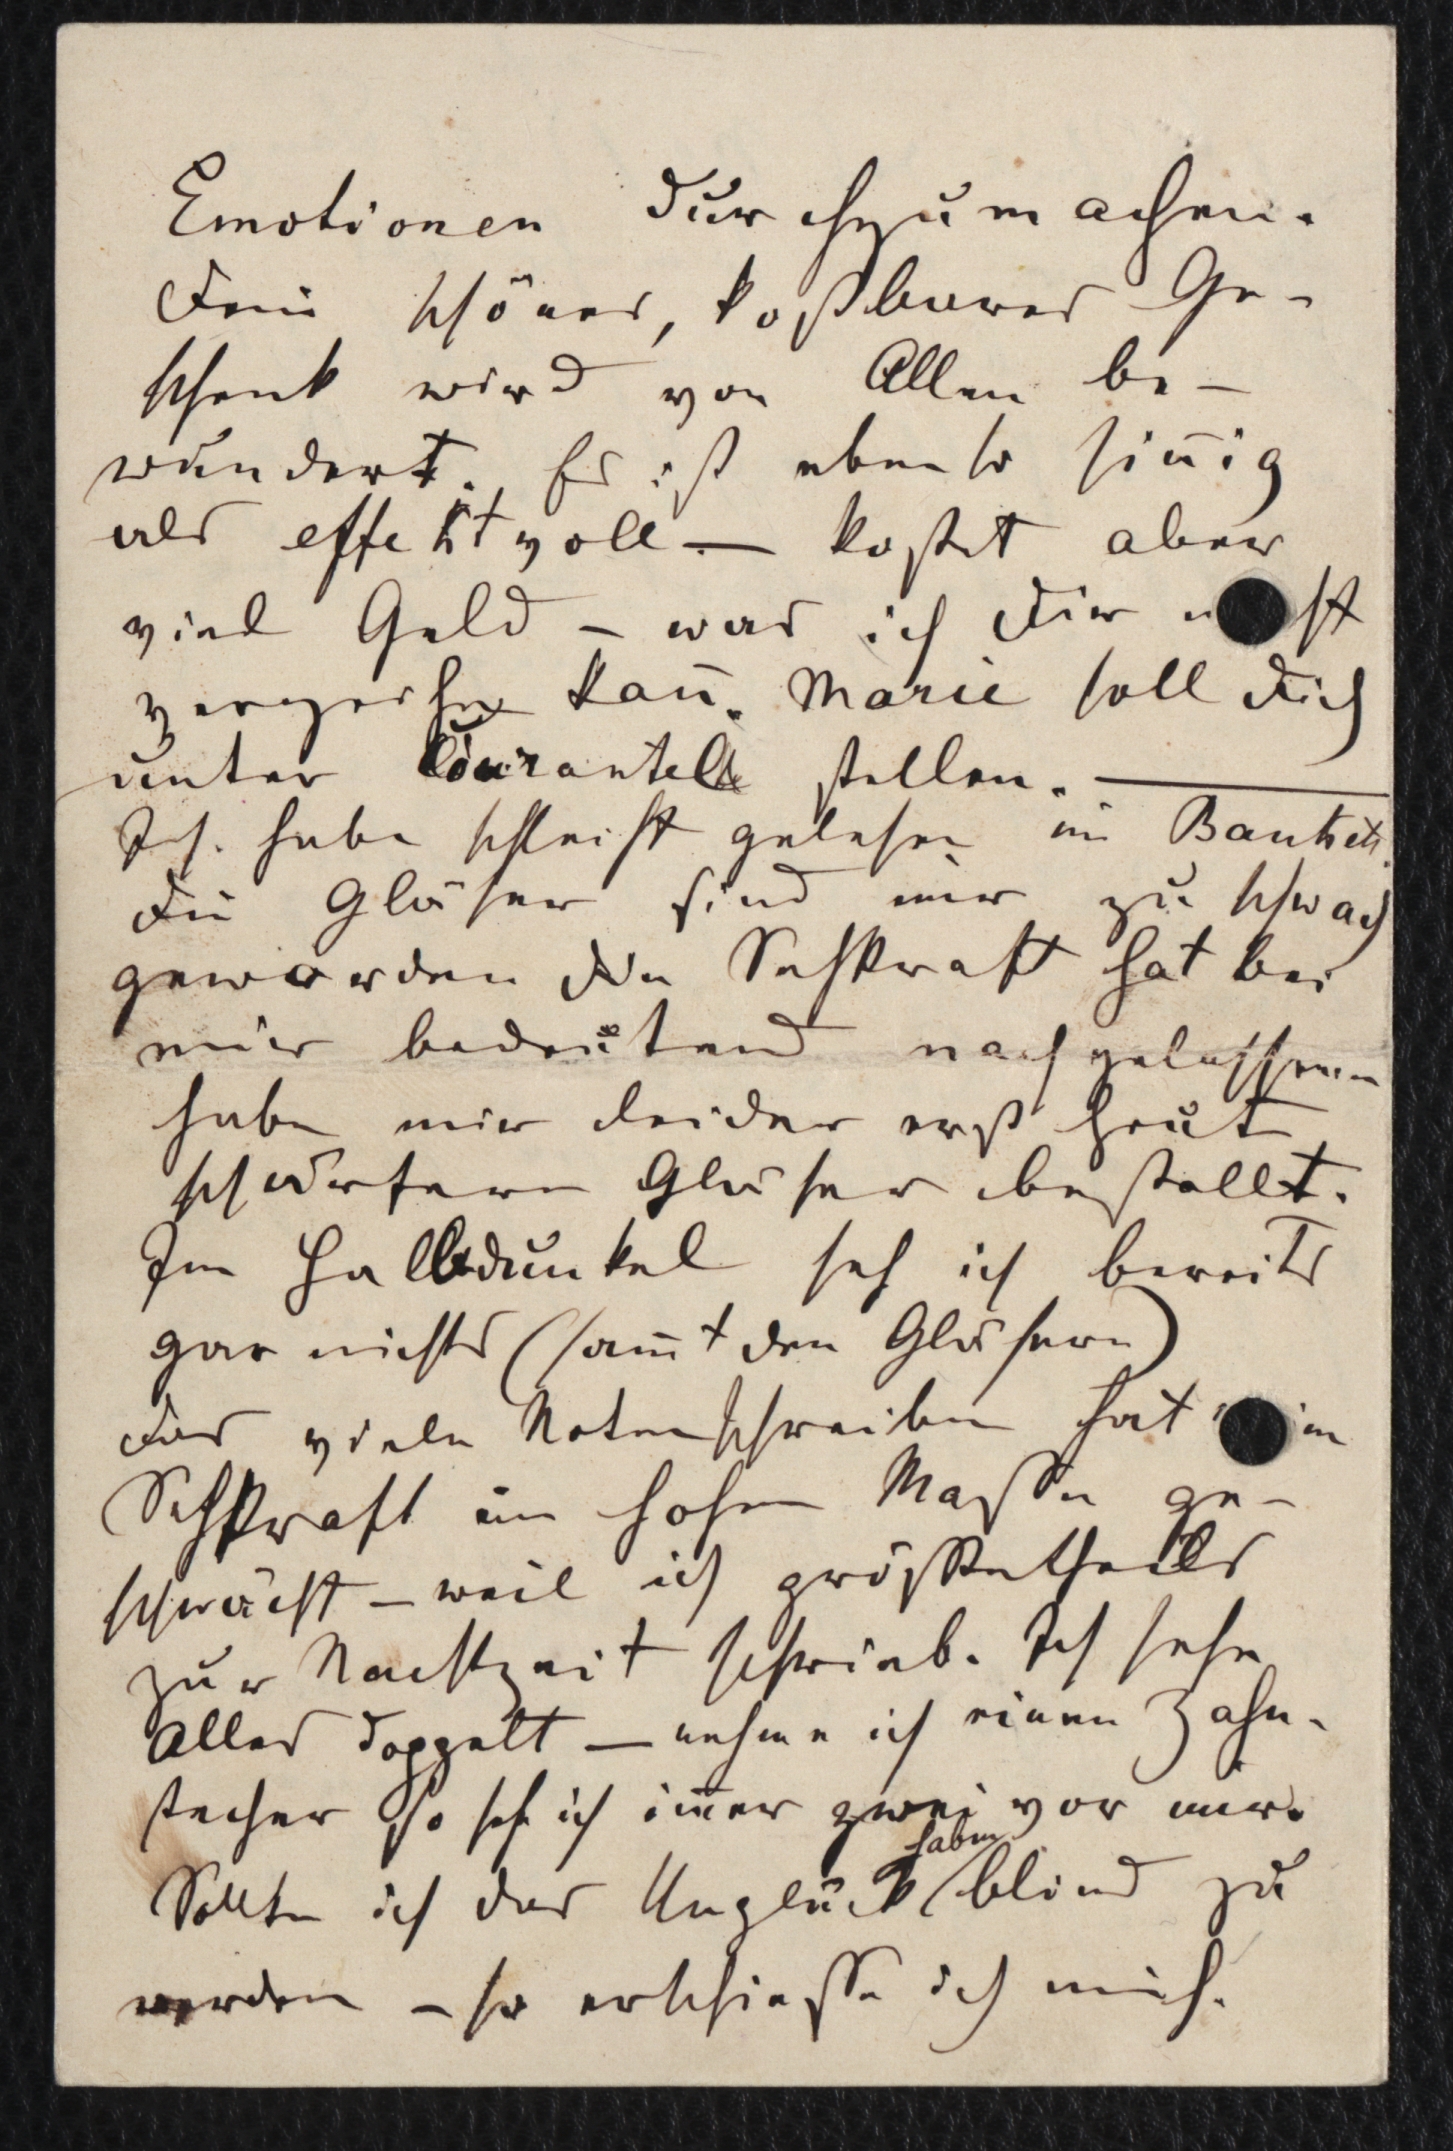 Emotionen durchzumachen.
Dein schönes, kostbares Ge-
schenk wird von Allen be-
wundert. Es ist ebenso siñig
als effektvoll — kostet aber
viel Geld – was ich Dir n st
verzeihen kañ. Marie soll Dich
unter Couratell stellen. —
Ich habe schlecht gelesen im
Die Gläser sind mir zu schwach
geworden die Sehkraft hat bei
mir bedeutend nachgelassen
habe mir leider erst heut
schärfere Gläser bestellt.
Im Halbdunkel seh ich bereits
gar nichts (sam̃t den Gläsern)
Das viele Notenschreiben hat in
Sehkraft im hohen Masse ge-
schwächt – weil ich grösstetheils
zur Nachtzeit schrieb. Ich sehe
Alles doppelt — nehme ich einen Zahn-
stecher so seh ich im̃er zwei vor mir.
Sollte ich das Unglück haben blind zu
werden – so erschiesse ich mich.